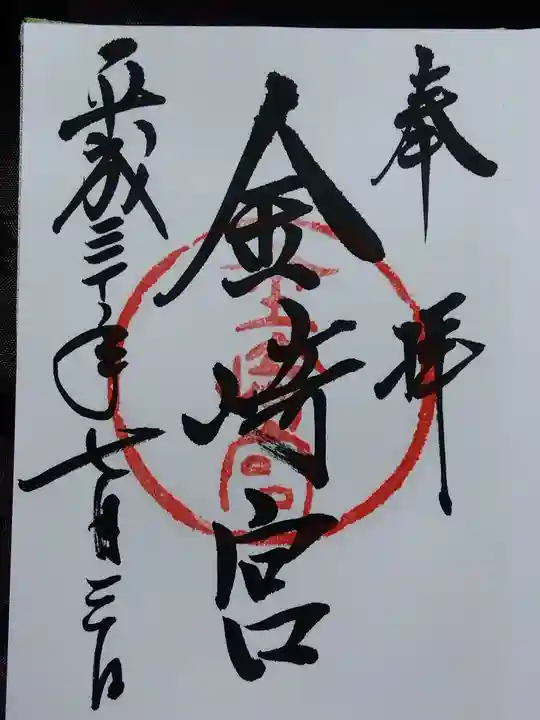 奉拝
金崎宮
金崎宮
平成三十年七月三日